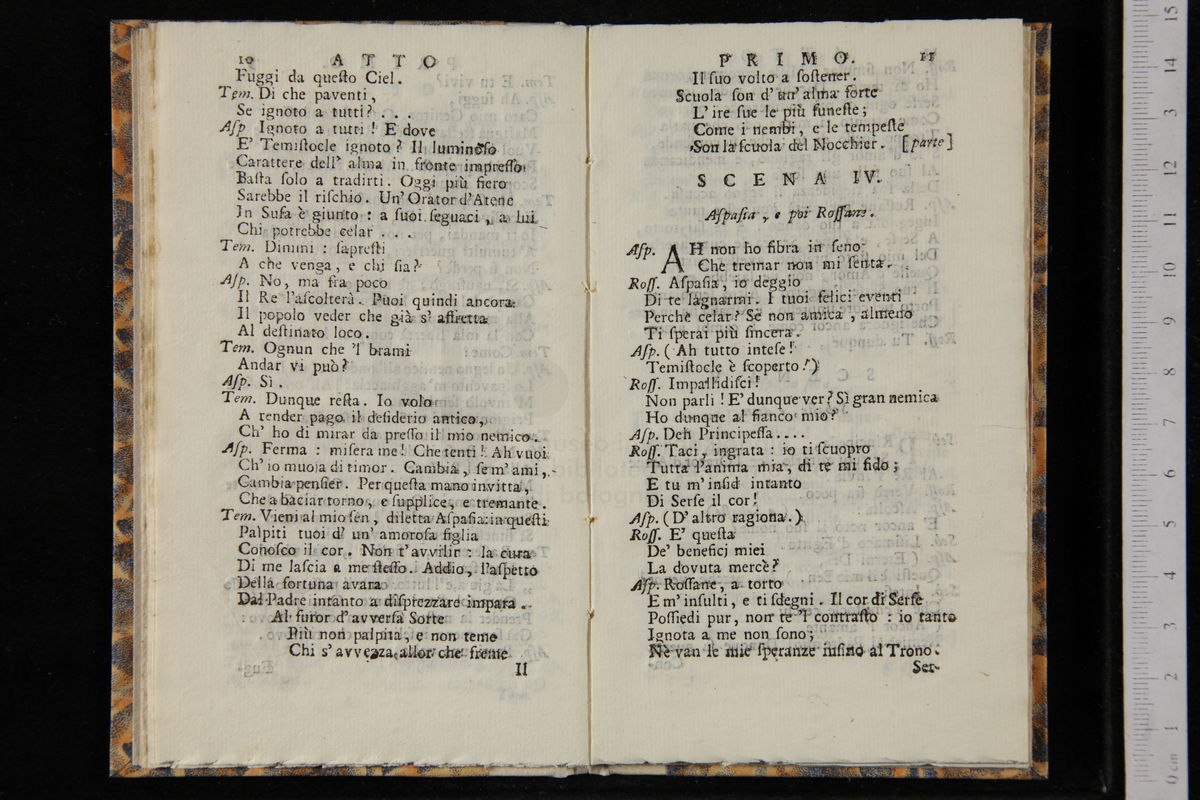 10 ATTO
Fuggi da queſto Ciel.
Tem. Di che paventi,
Se ignoto a tutti? . . .
Aſp Ignoto a tutti! E dove
E' Temiſtocle ignoto? Il luminoſo
Carattere dell' alma in fronte impreſſo
Baſta ſolo a tradirti. Oggi più fiero
Sarebbe il riſchio. Un' Orator d'Atene
In Suſa è giunto: a ſuoi ſeguaci, a lui
Chi potrebbe celar . . .
Tem. Dimmi: ſapreſti
A che venga, e chi ſia?
Aſp. No, ma fra poco
Il Re l'aſcolterà. Puoi quindi ancora
Il popolo veder che già s' affretta
Al deſtinato loco.
Tem. Ognun che 'l brami
Andar vi può?
Aſp. Sì.
Tem. Dunque reſta. Io volo
A render pago il deſiderio antico,
Ch' ho di mirar da preſſo il mio nemico.
Aſp. Ferma: miſera me! Che tenti! Ah vuoi
Ch' io muoia di timor. Cambia, ſe m' ami,
Cambia penſier. Per queſta mano invitta,
Che a baciar torno, e ſupplice, e tremante.
Tem. Vieni al mio ſen, diletta Aſpaſia: in queſti
Palpiti tuoi d' un' amoroſa figlia
Conoſco il cor. Non t'avvilir: la cura
Di me laſcia a me ſteſſo. Addio, l'aſpetto
Della fortuna avara
Dal Padre intanto a diſprezzare impara.
Al furor d' avverſa Sorte
Più non palpita, e non teme
Chi s' avvezza allor che freme
Il
PRIMO. 11
Il ſuo volto a ſoſtener.
Scuola ſon d' un' alma forte
L' ire ſue le più funeſte;
Come i nembi, e le tempeſte
Son la ſcuola del Nocchier. [parte]
SCENA IV.
Aſpaſia, e poi Roſſane.
Aſp. AH non ho fibra in ſeno
Che tremar non mi ſenta.
Roſſ. Aſpaſia, io deggio
Di te lagnarmi. I tuoi felici eventi
Perchè celar? Se non amica, almeno
Ti ſperai più ſincera.
Aſp. (Ah tutto inteſe!
Temiſtocle è ſcoperto!)
Roſſ. Impallidiſci!
Non parli! E' dunque ver? Sì gran nemica
Ho dunque al fianco mio?
Aſp. Deh Principeſſa....
Roſſ. Taci, ingrata: io ti ſcuopro
Tutta l'anima mia, di te mi fido;
E tu m' inſidi intanto
Di Serſe il cor!
Aſp. (D' altro ragiona.)
Roſſ. E' queſta
De' beneficj miei
La dovuta mercè?
Aſp. Roſſane, a torto
E m' inſulti, e ti ſdegni. Il cor di Serſe
Poſſiedi pur, non te 'l contraſto: io tanto
Ignota a me non ſono;
Nè van le mie ſperanze inſino al Trono.
Ser-